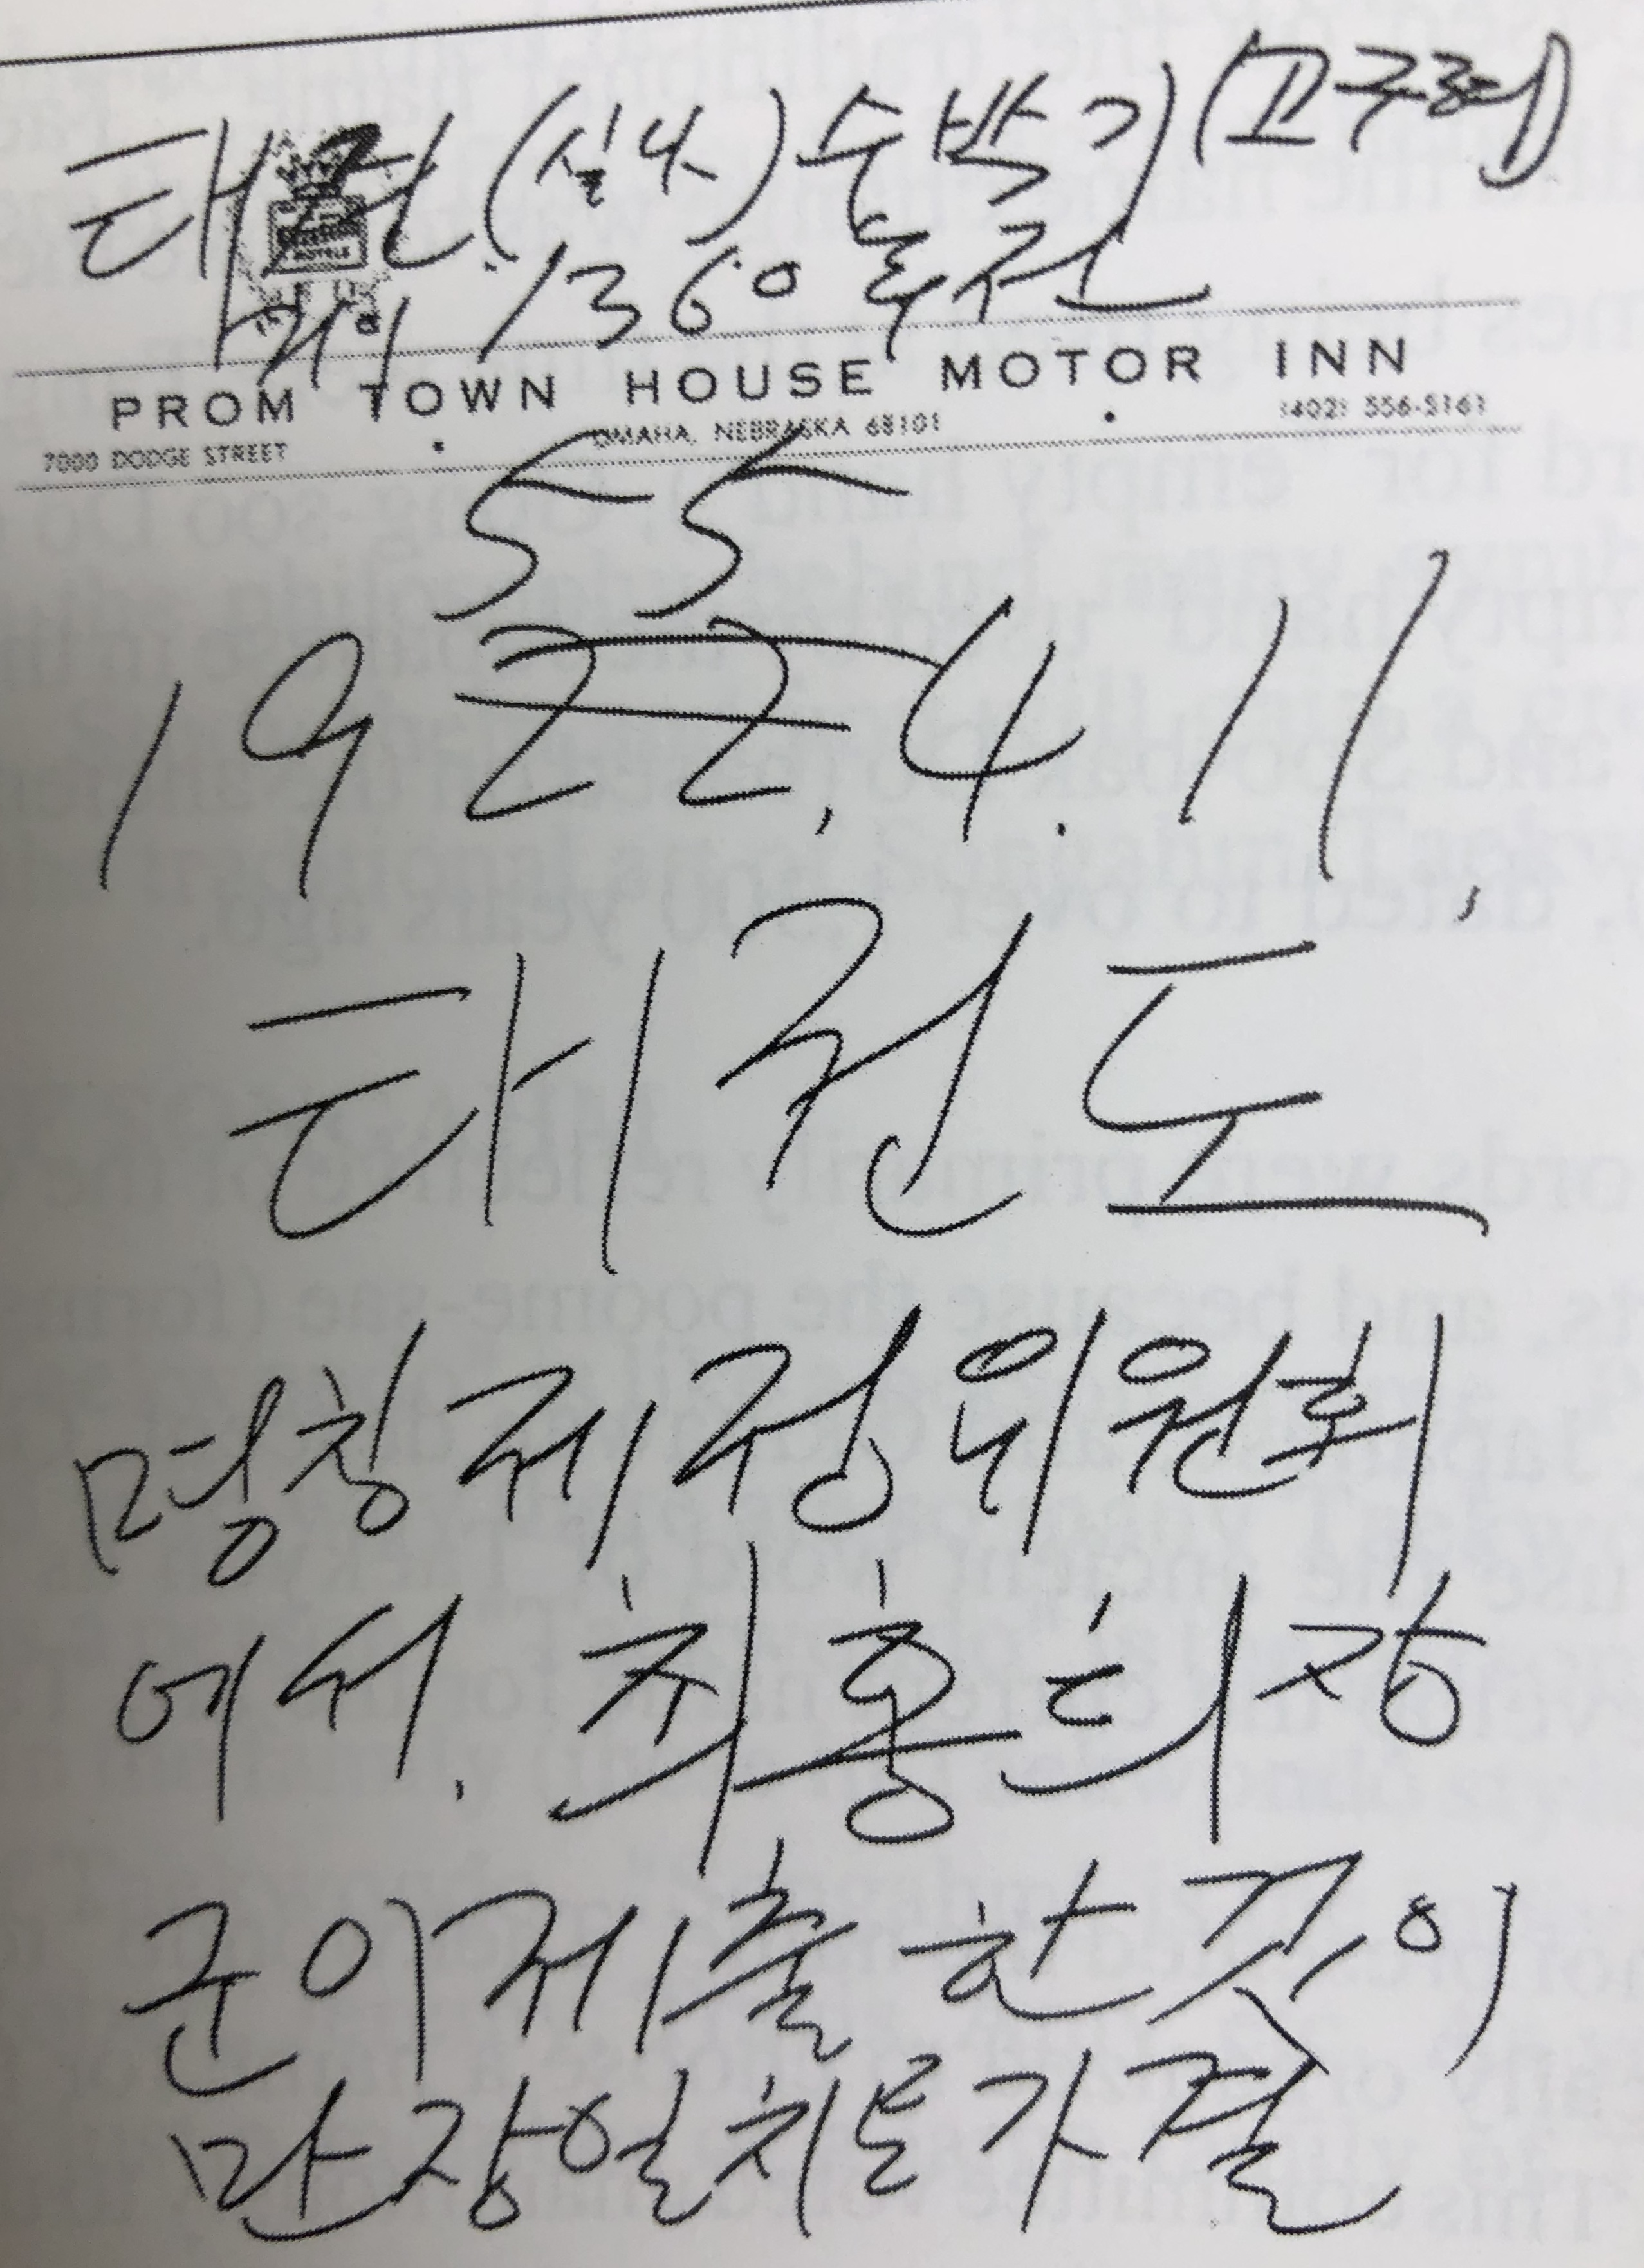 태권 (신라) 수박기 (고구려)
1360년 전
PROM TOWN HOUSE MOTOR INN
7000 DODGE STREET OMAHA, NEBRASKA 68101 (402) 556-5161
55
1922, 4. 11,
태권도
명칭제정위원회
에서, 최홍희장
군이제출한것이
만장일치로가결